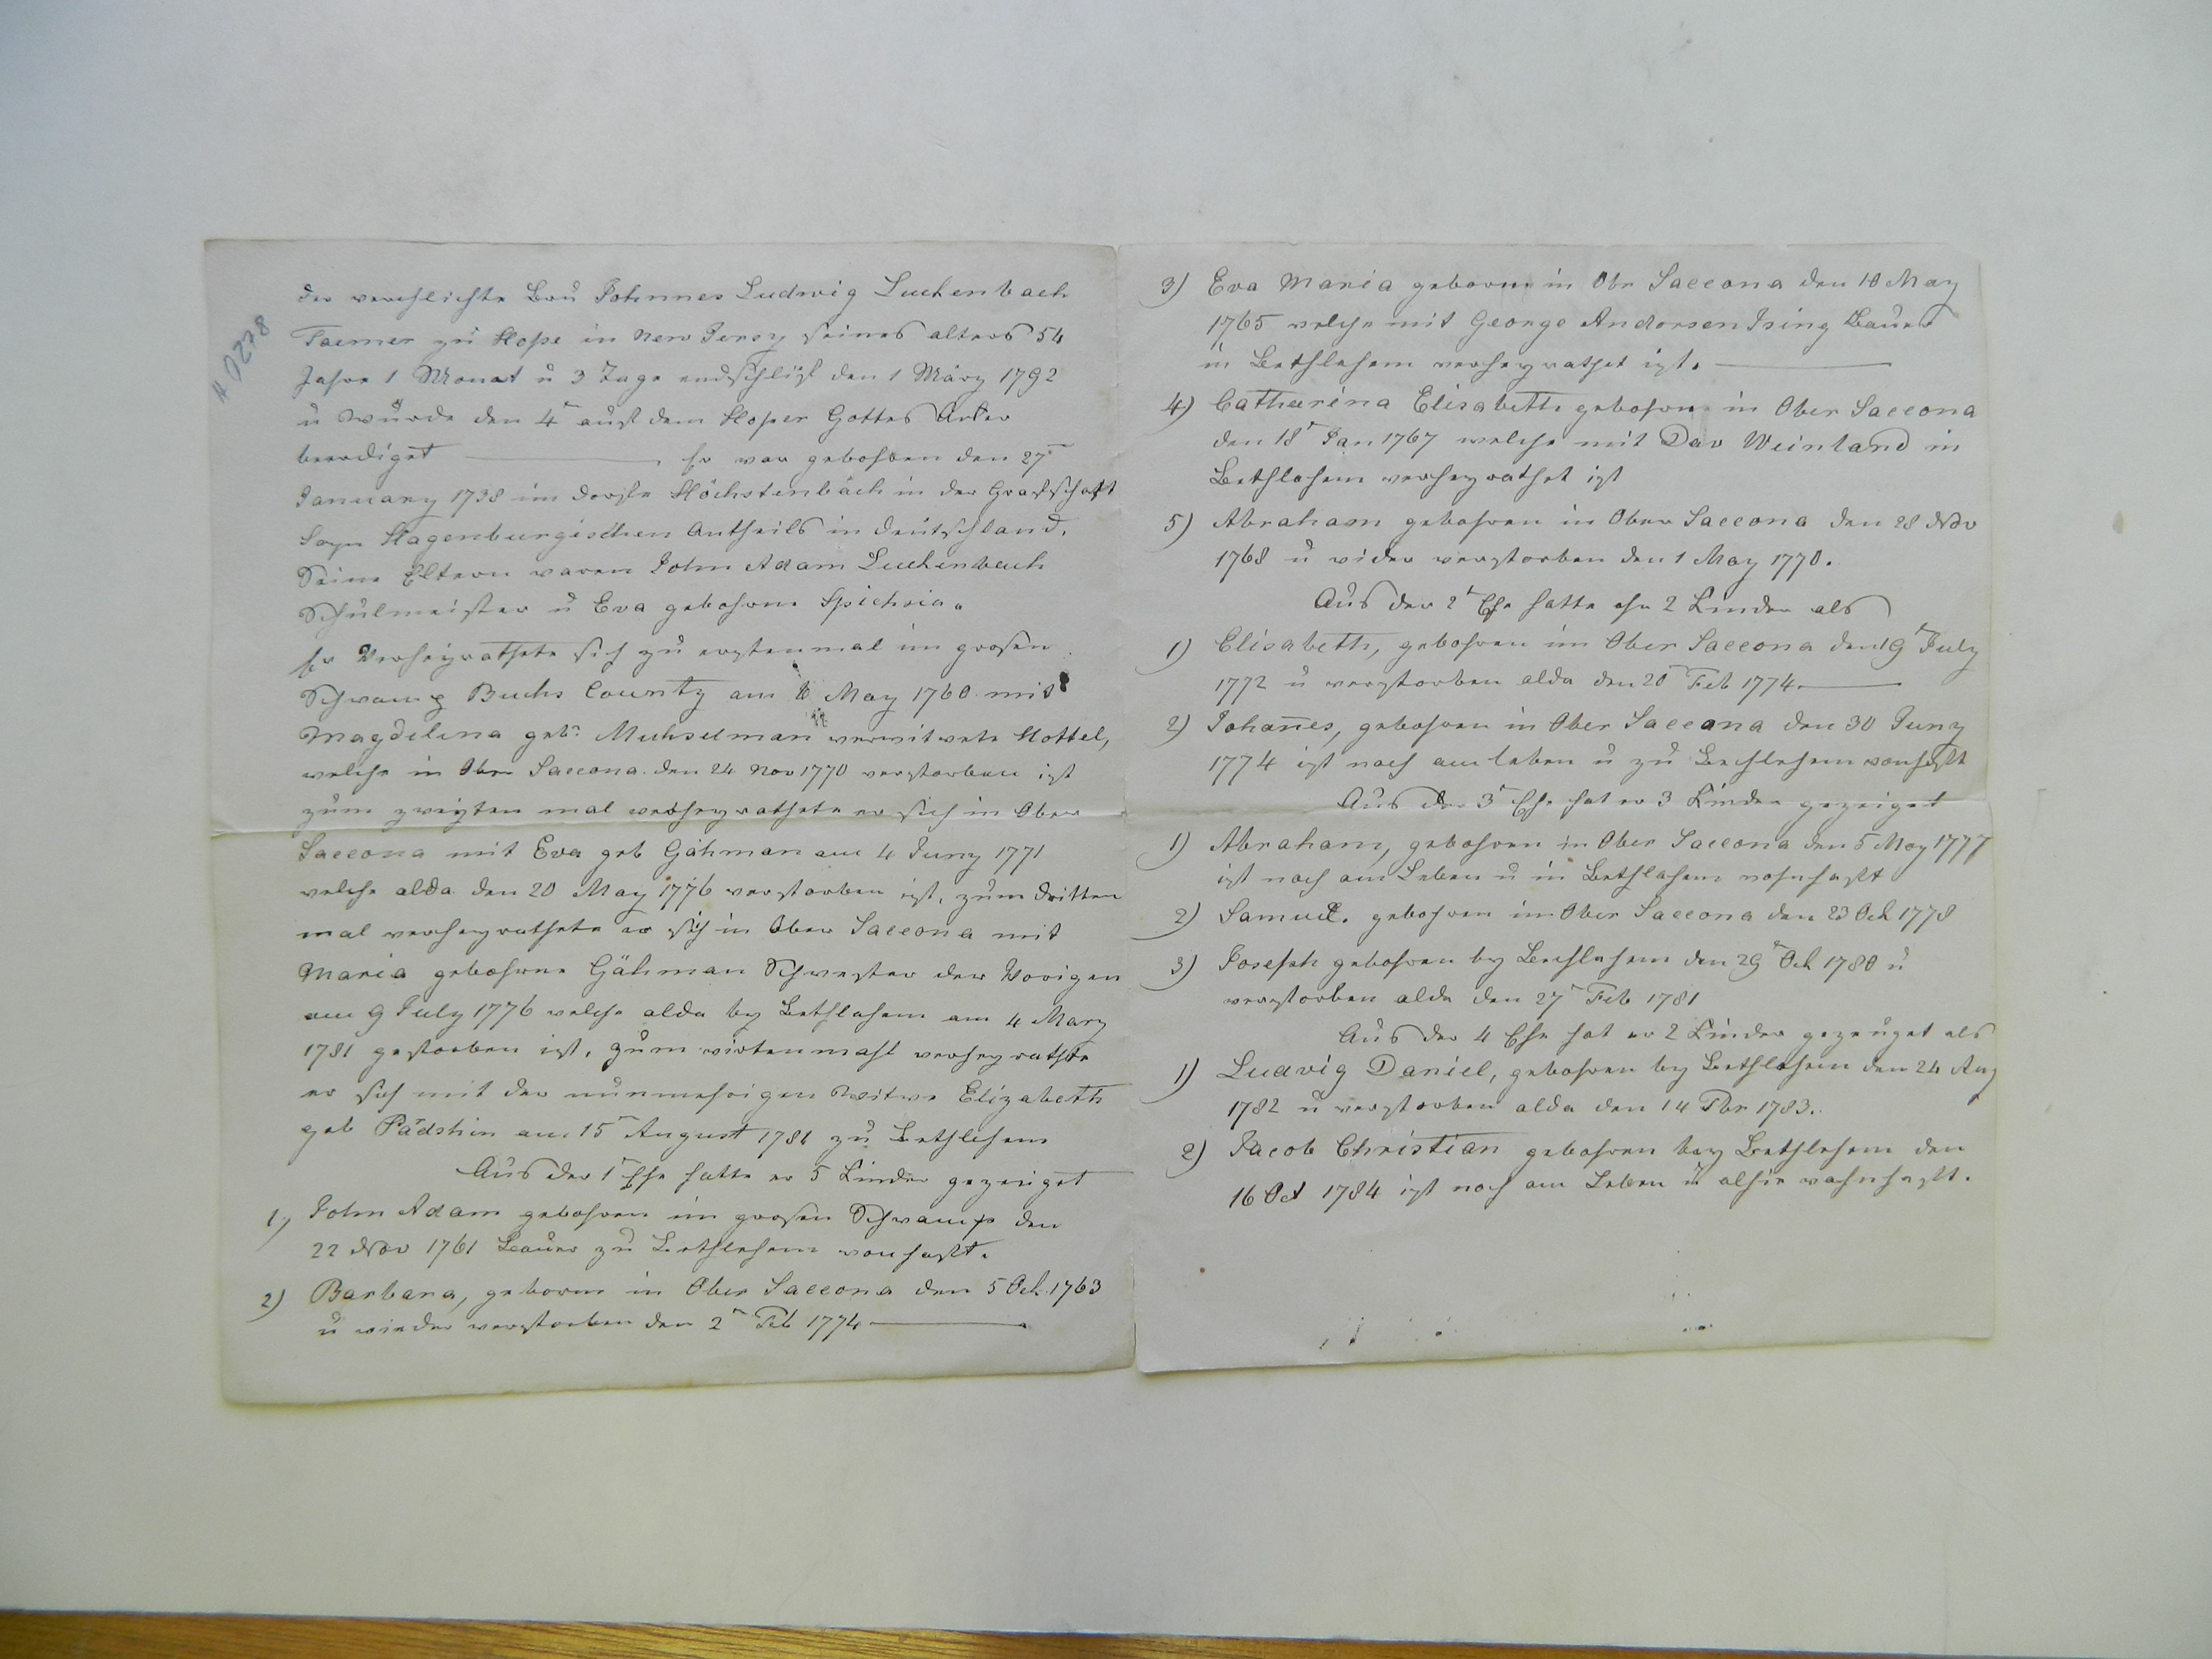 A 0278
der verehlichte Brü Johnnes Ludwig Luckenbach
Farmer zu Hope in New Jersy seines alters 54
Jahre 1 Monat u 3 Tage endschlift den 1 März 1792
u wurde den 4r auf dem Hoper Gottes Acker
beerdiget ——— Er war gebohren den 27n
January 1738 im dorfe Höchstenbach in der Grafschaft
Sayn Hagenburgischen Antheils in deutschland.
Seine Eltern waren John Adam Luckenbach
Schulmeister u Eva gebohrne Spichria.
Er Verheyrathete sich zu erstenmal im grosen
Schwamp Bucks County am May 1760 mit
Magdelena geb. Muchselman verwitwete Hottel,
welche in Ober Saccona den 24 Nov 1770 verstorben ist
zum zweyten mal verheyrathete er sich in Ober
Saccona mit Eva geb Gähman am 4 Juny 1771
welche alda den 20 May 1776 verstorben ist, zum dritten
mal verheyrathete er sich in Ober Saccona mit
Maria gebohrne Gähman Schwester der Vorigen
am 9 July 1776 welche alda by Bethlehem am 4 Marz
1781 gestorben ist, zum virtenmahl verheyrathte
er sich mit der nunmehrigen Witwe Elizabeth
geb Pädshin am 15n August 1781 zu Bethlehem
Aus der 1r Ehe hatte er 5 Kinder gezeiget
1, John Adam gebohren im grosen Schwamp den
22 Nov 1761 Bauer zu Bethlehem wonhaft.
2) Barbara, geborne in Ober Saccona den 5 Oct. 1763
u wieder verstorben den 2n Feb 1774 ———
3) Eva Maria geborne in Obr Saccona den 10 May
1765 welche mit George Andorsen Ising Bauer
in Bethlehem verheyrathet ist. ———
4) Catharina Elisabeth gebohrn in Ober Saccona
den 18r Jan 1767 welche mit Dav Weinland in
Bethlehem verheyrathet ist
5) Abraham gebohren in Ober Saccona den 28 Nov
1768 u wider verstorben den 1 May 1770.
Aus der 2r Ehe hatte ehr 2 Kinder als
1) Elisabeth, gebohren im Ober Saccona den 19r July
1772 u verstorben alda den 20n Feb 1774 ———
2) Johañes, gebohren in Ober Saccona den 30 Juny
1774 ist noch am leben u zu Bethlehem wonhaft
Aus der 3r Ehe hat er 3 Kinder gezeiget
1) Abraham, gebohren in Ober Saccona den 5 May 1777
ist noch am Leben u in Bethlehem wohnhaft
2) Samuel. gebohren im Ober Saccona den 23 Oct 1778
3) Joseph gebohren by Bethlehem den 29r Oct 1780 u
verstorben alda den 27r Feb 1781
Aus der 4 Ehe hat er 2 Kinder gezeuget als
1) Ludvig Daniel, gebohren by Bethlehem den 24 Aug
1782 u verstorben alda den 14 7br 1783.
2) Jacob Christian gebohren bey Bethlehem den
16 Oct 1784 ist noch am Leben u alhie wohnhaft.